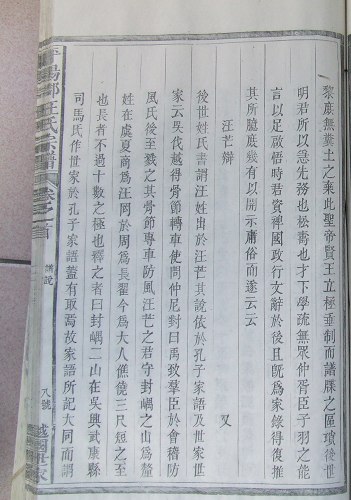 黎庶無棄土之棄此聖帝賢王立極垂制而譜牒之區瓊後世
明君所以急先務也松喬也才下學疏無眾仲胥臣子羽之能
言以足啟悟時君資裨國政行文辭於後且既為家錄得復推
其所臆度幾有以開示庸俗而遂云云
又
汪芒辯
後世姓氏書謂汪姓出於汪芒其說依於孔子家語及世家世
家云吳伐越得骨節轉車使問仲尼對曰禹致羣臣於會稽防
風氏後至戮之其骨節專車防風汪芒之君守封嵎之山為釐
姓在虞夏商為汪罔於周為長翟今為大人僬僥三尺短之至
也長者不過十數之極也釋之者曰封嵎二山在吳興武康縣
司馬氏作世家於孔子家語蓋有取焉故家語所記大同而謂
平陽郡汪氏宗譜
卷之首
譜說
八號
越國世家